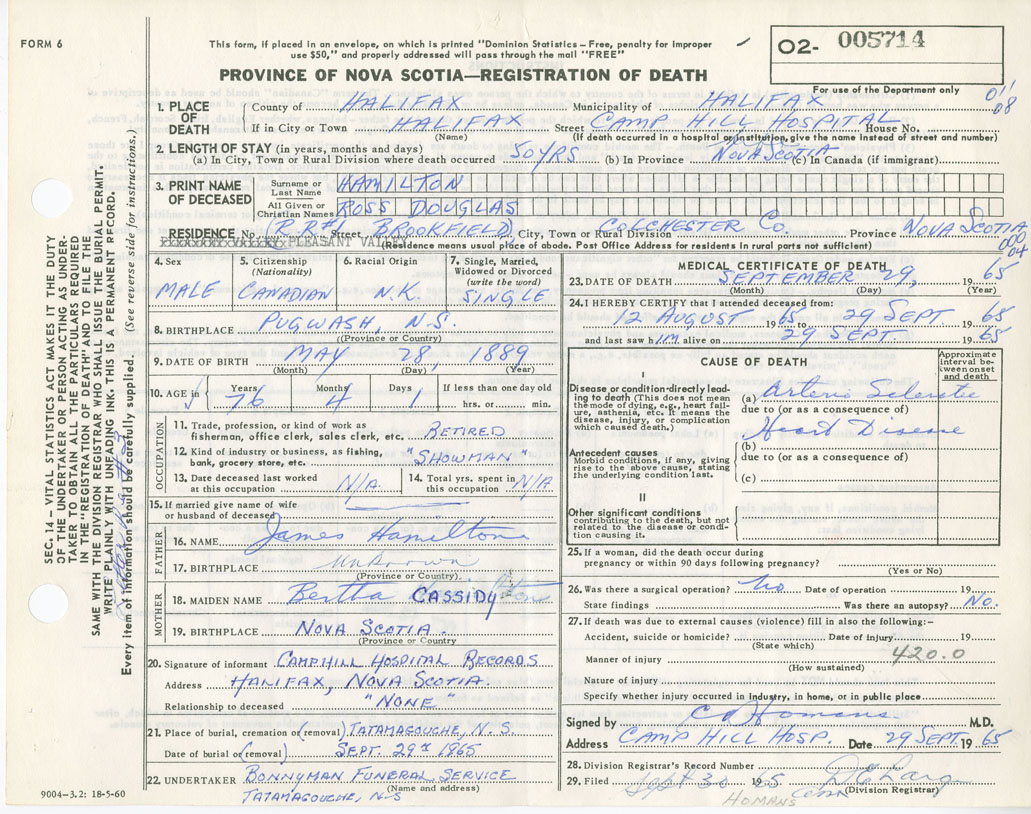 FORM 6
This form, if placed in an envelope, on which is printed "Dominion Statistics – Free, penalty for improper
use $50," and properly addressed will pass through the mail "FREE"
O2- 005714
PROVINCE OF NOVA SCOTIA—REGISTRATION OF DEATH
For use of the Department only
1. PLACE OF DEATH
County of HALIFAX Municipality of HALIFAX
If in City or Town HALIFAX Street CAMP HILL HOSPITAL House No.
(Name) (If death occurred in a hospital or institution, give the name instead of street and number)
2. LENGTH OF STAY (in years, months and days)
(a) In City, Town or Rural Division where death occurred 50 YRS (b) In Province NOVA SCOTIA (c) In Canada (if immigrant)
3. PRINT NAME OF DECEASED
Surname or Last Name HAMILTON
All Given or Christian Names ROSS DOUGLAS
RESIDENCE No. (R.R.#1 Street BROOKFIELD) City, Town or Rural Division COLCHESTER CO. Province NOVA SCOTIA
PLEASANT VALLEY (Residence means usual place of abode. Post Office Address for residents in rural parts not sufficient)
4. Sex
MALE
5. Citizenship
(Nationality)
CANADIAN
6. Racial Origin
N.K.
7. Single, Married,
Widowed or Divorced
(write the word)
SINGLE
8. BIRTHPLACE PUGWASH, N.S.
(Province or Country)
9. DATE OF BIRTH MAY 28, 1889
(Month) (Day) (Year)
10. AGE in Years 76 Months 4 Days 1 If less than one day old
hrs. or min.
OCCUPATION
11. Trade, profession, or kind of work as
fisherman, office clerk, sales clerk, etc. RETIRED
12. Kind of industry or business, as fishing,
bank, grocery store, etc. "SHOWMAN"
13. Date deceased last worked
at this occupation N/A
14. Total yrs. spent in
this occupation N/A
15. If married give name of wife
or husband of deceased
FATHER
16. NAME James Hamilton
17. BIRTHPLACE Unknown
(Province or Country)
MOTHER
18. MAIDEN NAME Bertha CASSIDY
19. BIRTHPLACE NOVA SCOTIA.
(Province or Country
20. Signature of informant CAMPHILL HOSPITAL RECORDS
Address HALIFAX, NOVA SCOTIA.
Relationship to deceased "NONE"
21. Place of burial, cremation or (removal) TATAMAGOUCHE, N.S.
Date of burial or (removal) SEPT. 29th 1965
22. UNDERTAKER BONNYMAN FUNERAL SERVICE
(Name and address)
TATAMAGOUCHE, N.S
MEDICAL CERTIFICATE OF DEATH
23. DATE OF DEATH SEPTEMBER 29, 1965
(Month) (Day) (Year)
24. I HEREBY CERTIFY that I attended deceased from:
12 AUGUST 1965 29 SEPT 1965
and last saw hIM alive on 29 SEPT. 1965
CAUSE OF DEATH
Approximate
interval be-
tween onset
and death
I
Disease or condition directly lead-
ing to death (This does not mean
the mode of dying, e.g., heart fail-
ure, asthenia, etc. It means the
disease, injury, or complication
which caused death.)
(a) Arterio Sclerotic
due to (or as a consequence of)
Heart Disease
(b)
due to (or as a consequence of)
(c)
Antecedent causes
Morbid conditions, if any, giving
rise to the above cause, stating
the underlying condition last.
II
Other significant conditions
contributing to the death, but not
related to the disease or condi-
tion causing it.
25. If a woman, did the death occur during
pregnancy or within 90 days following pregnancy?
(Yes or No)
26. Was there a surgical operation? No Date of operation 19
State findings Was there an autopsy? No.
27. If death was due to external causes (violence) fill in also the following:–
Accident, suicide or homicide? Date of injury 19
(State which)
Manner of injury 420.0
(How sustained)
Nature of injury
Specify whether injury occurred in industry, in home, or in public place
Signed by C D Homans M.D.
Address CAMP HILL HOSP. Date 29 SEPT. 1965
28. Division Registrar's Record Number
29. Filed Sept 30 1965
(Division Registrar)
HOMANS
SEC. 14 – VITAL STATISTICS ACT MAKES IT THE DUTY
OF THE UNDERTAKER OR PERSON ACTING AS UNDER-
TAKER TO OBTAIN ALL THE PARTICULARS REQUIRED
IN THE "REGISTRATION OF DEATH" AND FILE THE
SAME WITH THE DIVISION REGISTRAR WHO SHALL ISSUE THE BURIAL PERMIT.
WRITE PLAINLY WITH UNFADING INK. THIS IS A PERMANENT RECORD.
Every item of information should be carefully supplied. (See reverse side for instructions.)
9004–3.2: 18-5-60